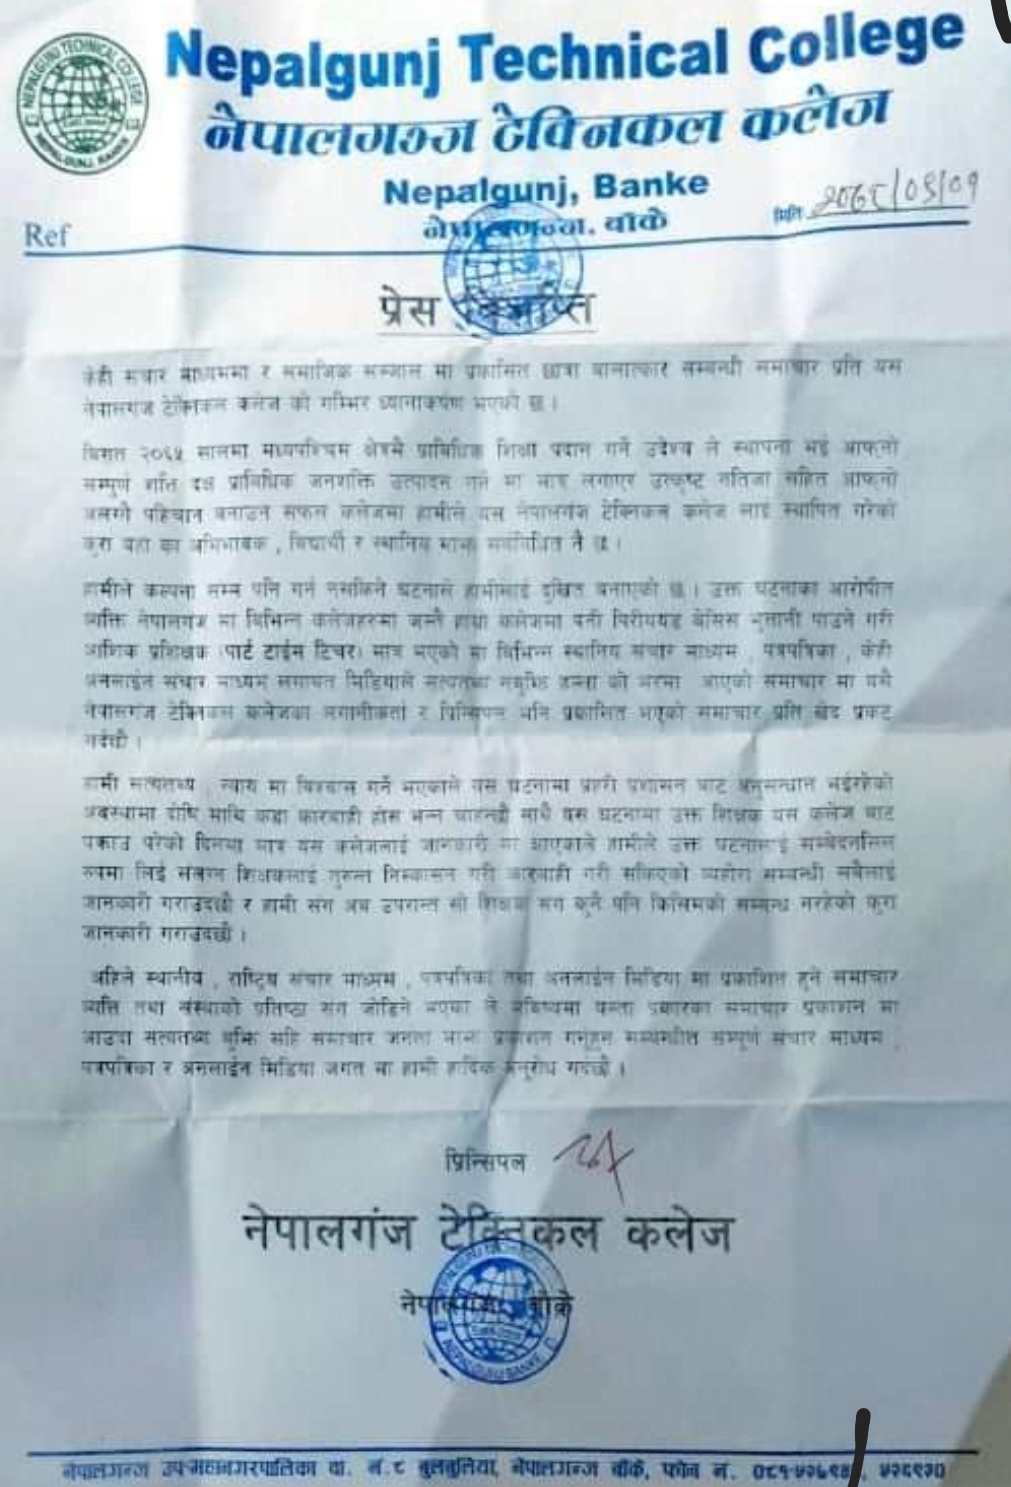 Nepalgunj Technical College
नेपालगञ्ज टेक्निकल कलेज
Nepalgunj, Banke
नेपालगन्ज. बाँके
मिति
Ref
प्रेस विज्ञप्ति
केही संचार माध्यममा र समाजिक सञ्जाल मा प्रकासित छात्रा बालात्कार सम्बन्धी समाचार प्रति यस
नेपालगंज टेक्निकल कलेज को गम्भिर ध्यानाकर्षण भएको छ ।
बिगत २०६५ सालमा मध्यपश्चिम क्षेत्रमै प्राबिधिक शिक्षा प्रदान गर्ने उदेश्य ले स्थापना भई आफ्नो
सम्पुर्ण शक्ति दक्ष प्राबिधिक जनशक्ति उत्पादन गर्न मा मात्र लगाएर उत्कृष्ट नतिजा सहित आफ्नो
अलग्गै पहिचान बनाउन सफल कलेजमा हामीले यस नेपालगंज टेक्निकल कलेज लाई स्थापित गरेको
कुरा यहा का अभिभाबक , बिद्यार्थी र स्थानिय माझ सर्वबिधित नै छ ।
हामीले कल्पना सम्म पनि गर्न नसकिने घटनाले हामीलाई दुखित बनाएको छ । उक्त घटनाका आरोपीत
व्यक्ति नेपालगंज मा बिभिन्न कलेजहरुमा जस्तै हाम्रो कलेजमा पनी पिरीययड बेसिस भुक्तानी पाउने गरी
आंशिक प्रशिक्षक (पार्ट टाईम टिचर) मात्र भएको मा बिभिन्न स्थानिय संचार माध्यम , पत्रपत्रिका , केही
अनलाईन संचार माध्यम लगायत मिडियाले सत्यतथ्य नबुझि हल्ला को भरमा आएको समाचार मा यसै
नेपालगंज टेक्निकल कलेजका लगानीकर्ता र प्रिन्सिपल भनि प्रकासित भएको समाचार प्रति खेद प्रकट
गर्दछौ ।
हामी सत्यतथ्य , न्याय मा बिश्वास गर्ने भएकाले यस घटनामा प्रहरी प्रशासन बाट अनुसन्धान भईरहेको
अवस्थामा दोषि माथि कडा कारवाही होस भन्न चाहन्छौ साथै यस घटनामा उक्त शिक्षक यस कलेज बाट
पक्राउ परेको दिनमा मात्र यस कलेजलाई जानकारी मा आएकाले हामीले उक्त घटनालाई सम्बेदनसिल
रुपमा लिई संलग्न शिक्षकलाई तुरुन्त निस्कासन गरी कारवाही गरी सकिएको व्यहोरा सम्बन्धी सबैलाई
जानकारी गराउदछौ र हामी संग अब उपरान्त सो शिक्षक संग कुनै पनि किसिमको सम्बन्ध नरहेको कुरा
जानकारी गराउदछौ ।
अहिले स्थानीय , राष्ट्रिय संचार माध्यम , पत्रपत्रिका तथा अनलाईन मिडिया मा प्रकाशित हुने समाचार
व्यक्ति तथा संस्थाको प्रतिष्ठा संग जोडिने भएका ले भबिष्यमा यस्ता प्रकारका समाचार प्रकाशन मा
आउदा सत्यतथ्य बुझि सहि समाचार जनता माझ प्रकाशन गर्नुहुन सम्बन्धीत सम्पूर्ण संचार माध्यम ,
पत्रपत्रिका र अनलाईन मिडिया जगत मा हामी हार्दिक अनुरोध गर्दछौ ।
प्रिन्सिपल
नेपालगंज टेक्निकल कलेज
नेपालगंज, बाँके
नेपालगन्ज उप-महानगरपालिका वा. नं. ८ बुलबुलिया, नेपालगन्ज बाँके, फोन नं.